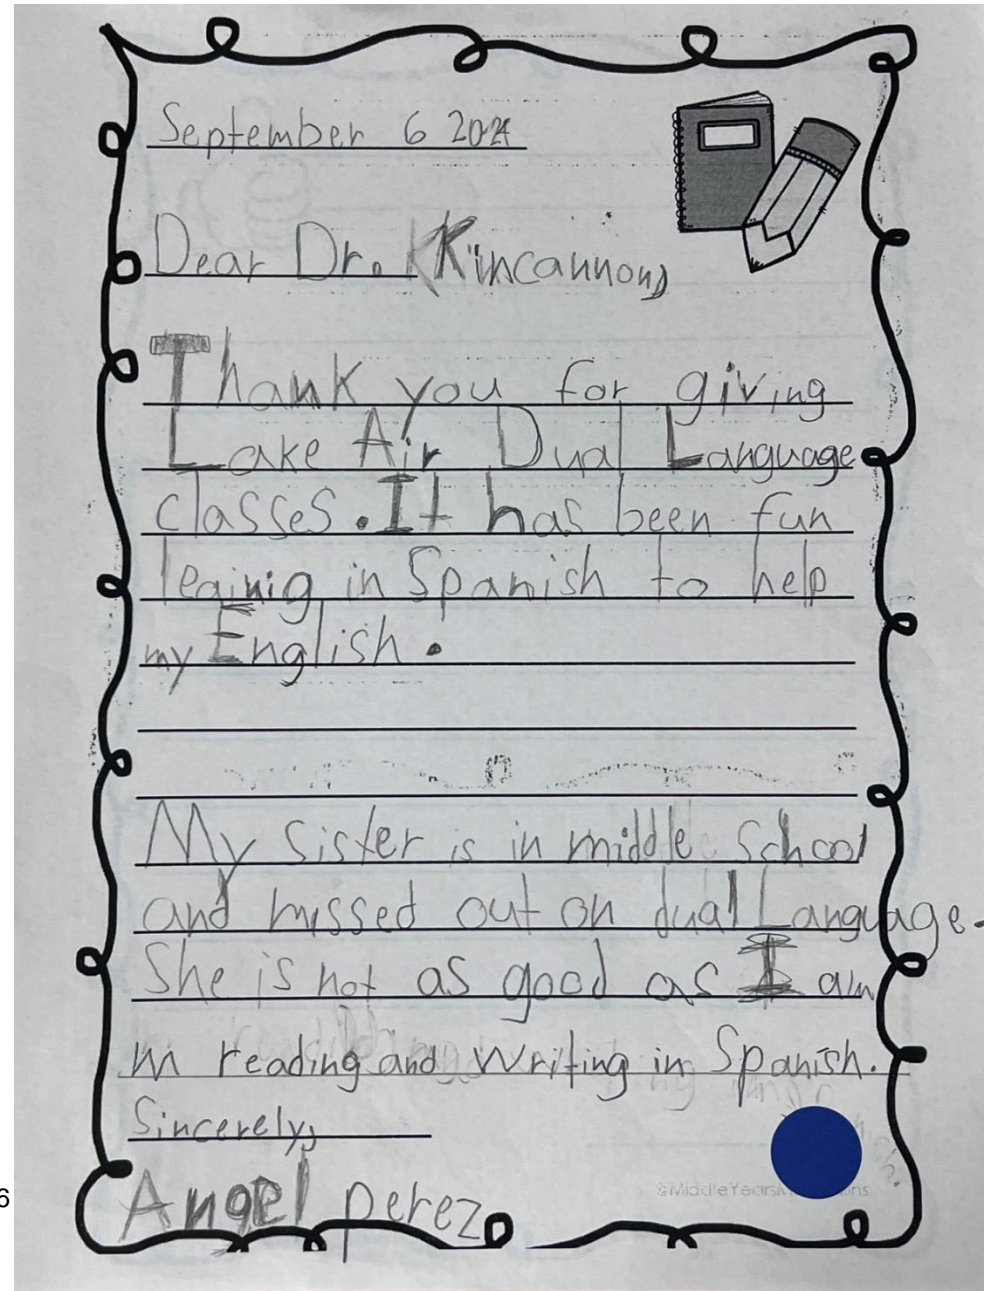 September 6 2024
Dear Dr. Kincannon,
Thank you for giving
Lake Air Dual Language
classes. It has been fun
leainig in Spanish to help
my English.
My sister is in middle School
and missed out on dual Language.
She is not as good as I am
in reading and writing in Spanish.
Sincerely,
Angel perez
6